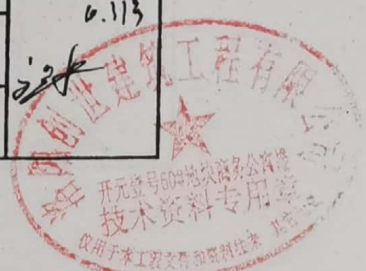 6.113
洛阳创世建筑工程有限公司
开元壹号60#地块商务公寓楼
技术资料专用章
仅用于本工程文件和资料往来